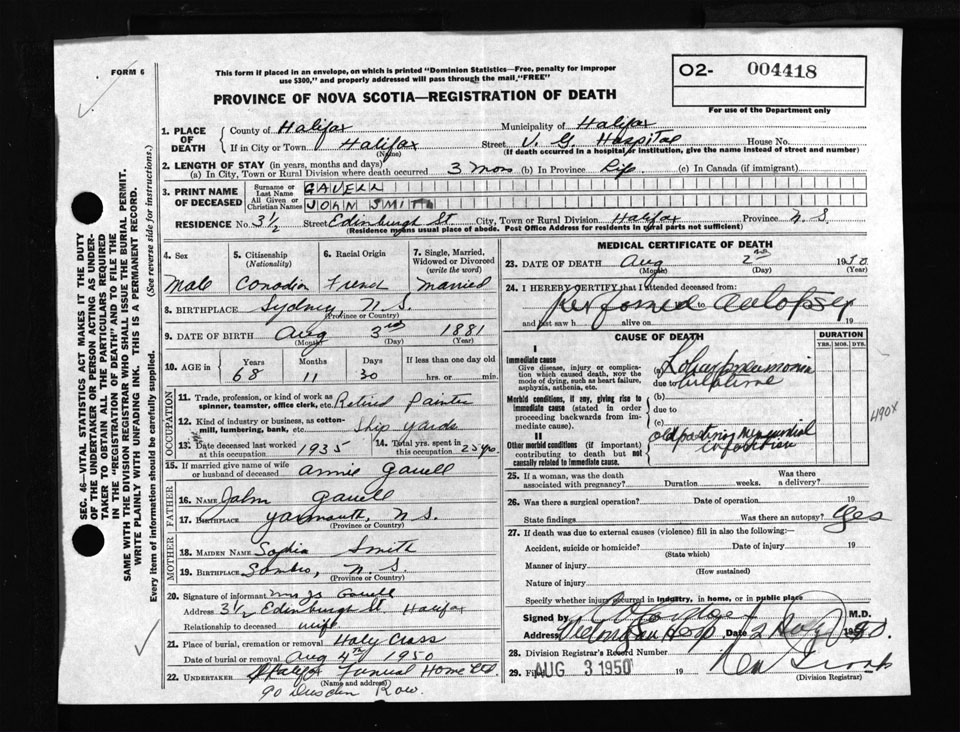 FORM 6
This form if placed in an envelope, on which is printed "Dominion Statistics—Free, penalty for improper
use $300," and properly addressed will pass through the mail, "FREE"
O2- 004418
For use of the Department only
PROVINCE OF NOVA SCOTIA—REGISTRATION OF DEATH
SEC. 46—VITAL STATISTICS ACT MAKES IT THE DUTY
OF THE UNDERTAKER OR PERSON ACTING AS UNDER-
TAKER TO OBTAIN ALL THE PARTICULARS REQUIRED
IN THE "REGISTRATION OF DEATH" AND TO FILE THE
SAME WITH THE DIVISION REGISTRAR WHO SHALL ISSUE THE BURIAL PERMIT.
WRITE PLAINLY WITH UNFADING INK. THIS IS A PERMANENT RECORD.
Every item of information should be carefully supplied. (See reverse side for instructions.)
1. PLACE OF DEATH
County of Halifax Municipality of Halifax
If in City or Town Halifax Street V. G. Hospital House No.
(Name) (If death occurred in a hospital or institution, give the name instead of street and number)
2. LENGTH OF STAY (in years, months and days)
(a) In City, Town or Rural Division where death occurred 3 mos (b) In Province Life (c) In Canada (if immigrant)
3. PRINT NAME OF DECEASED
Surname or Last Name GAVELL
All Given or Christian Names JOHN SMITH
RESIDENCE No. 3½ Street Edinburgh St. City, Town or Rural Division Halifax Province N. S.
(Residence means usual place of abode. Post Office Address for residents in rural parts not sufficient)
4. Sex Male
5. Citizenship (Nationality) Canadian
6. Racial Origin French
7. Single, Married, Widowed or Divorced (write the word) Married
8. BIRTHPLACE Sydney N. S.
(Province or Country)
9. DATE OF BIRTH Aug 3rd 1881
(Month) (Day) (Year)
10. AGE in Years Months Days If less than one day old
68 11 30 hrs. or min.
OCCUPATION
11. Trade, profession, or kind of work as spinner, teamster, office clerk, etc. Retired Painter
12. Kind of industry or business, as cotton-mill, lumbering, bank, etc. Ship yards
13. Date deceased last worked at this occupation 1935
14. Total yrs. spent in this occupation 25 yrs.
15. If married give name of wife or husband of deceased Annie Gavell
FATHER
16. NAME John Gavell
17. BIRTHPLACE Yarmouth, N. S.
(Province or Country)
MOTHER
18. MAIDEN NAME Sophia Smith
19. BIRTHPLACE Sambro, N. S.
(Province or Country)
20. Signature of informant Mrs Js Gavell
Address 3½ Edinburgh St. Halifax
Relationship to deceased wife
21. Place of burial, cremation or removal Holy Cross
Date of burial or removal Aug 4th 1950
22. UNDERTAKER Halifax Funeral Home Ltd
(Name and address)
90 Row.
MEDICAL CERTIFICATE OF DEATH
23. DATE OF DEATH Aug 2nd 1950
(Month) (Day) (Year)
24. I HEREBY CERTIFY that I attended deceased from:
Performed autopsy
and last saw h alive on 19
CAUSE OF DEATH
DURATION
YRS. MOS. DYS.
I
Immediate cause
Give disease, injury or complication which caused death, not the mode of dying, such as heart failure, asphyxia, asthenia, etc.
(a) Lobar pneumonia
due to
Morbid conditions, if any, giving rise to immediate cause (stated in order proceeding backwards from immediate cause).
(b)
due to
(c)
490X
II
Other morbid conditions (if important) contributing to death but not causally related to immediate cause.
old myocardial
infarction
25. If a woman, was the death associated with pregnancy? Duration weeks. Was there a delivery?
26. Was there a surgical operation? Date of operation 19
State findings Was there an autopsy? Yes
27. If death was due to external causes (violence) fill in also the following:—
Accident, suicide or homicide? Date of injury 19
(State which)
Manner of injury
(How sustained)
Nature of injury
Specify whether injury occurred in industry, in home, or in public place
Signed by M.D.
Address Hosp Date 2 1950.
28. Division Registrar's Record Number
29. Filed AUG 3 1950 19
(Division Registrar)